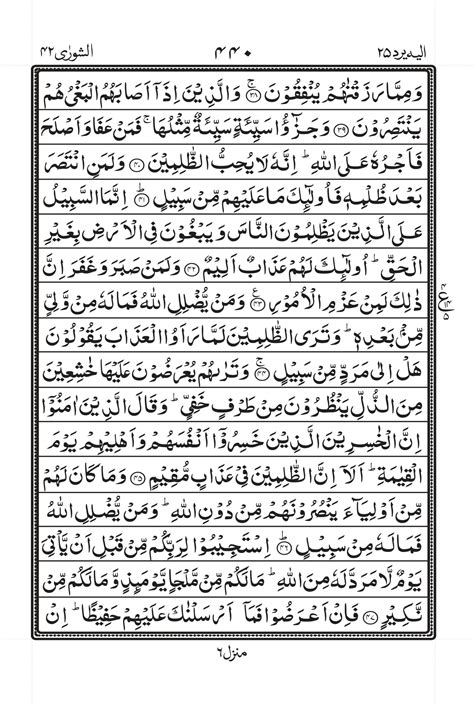 الیه یرد ۲۵ ۴۴۰ الشورٰی ۴۲
وَمِمَّا رَزَقْنٰهُمْ يُنْفِقُوْنَ ۚ﴿۳۸﴾ وَالَّذِيْنَ اِذَاۤ اَصَابَهُمُ الْبَغْیُ هُمْ
يَنْتَصِرُوْنَ ﴿۳۹﴾ وَجَزٰٓؤُا سَيِّئَةٍ سَيِّئَةٌ مِّثْلُهَا ۚ فَمَنْ عَفَا وَاَصْلَحَ
فَاَجْرُهٗ عَلَی اللّٰهِ ؕ اِنَّهٗ لَا يُحِبُّ الظّٰلِمِيْنَ ﴿۴۰﴾ وَلَمَنِ انْتَصَرَ
بَعْدَ ظُلْمِهٖ فَاُولٰٓئِكَ مَا عَلَيْهِمْ مِّنْ سَبِيْلٍ ؕ﴿۴۱﴾ اِنَّمَا السَّبِيْلُ
عَلَی الَّذِيْنَ يَظْلِمُوْنَ النَّاسَ وَ يَبْغُوْنَ فِی الْاَرْضِ بِغَيْرِ
الْحَقِّ ؕ اُولٰٓئِكَ لَهُمْ عَذَابٌ اَلِيْمٌ ﴿۴۲﴾ وَلَمَنْ صَبَرَ وَ غَفَرَ اِنَّ
ذٰلِكَ لَمِنْ عَزْمِ الْاُمُوْرِ ﴿۴۳﴾ وَمَنْ يُّضْلِلِ اللّٰهُ فَمَا لَهٗ مِنْ وَّلِیٍّ
مِّنْۢ بَعْدِهٖ ؕ وَتَرَی الظّٰلِمِيْنَ لَمَّا رَاَوُا الْعَذَابَ يَقُوْلُوْنَ
هَلْ اِلٰی مَرَدٍّ مِّنْ سَبِيْلٍ ۚ﴿۴۴﴾ وَتَرٰىهُمْ يُعْرَضُوْنَ عَلَيْهَا خٰشِعِيْنَ
مِنَ الذُّلِّ يَنْظُرُوْنَ مِنْ طَرْفٍ خَفِیٍّ ؕ وَقَالَ الَّذِيْنَ اٰمَنُوْۤا
اِنَّ الْخٰسِرِيْنَ الَّذِيْنَ خَسِرُوْۤا اَنْفُسَهُمْ وَاَهْلِيْهِمْ يَوْمَ
الْقِيٰمَةِ ؕ اَلَاۤ اِنَّ الظّٰلِمِيْنَ فِیْ عَذَابٍ مُّقِيْمٍ ﴿۴۵﴾ وَمَا كَانَ لَهُمْ
مِّنْ اَوْلِيَآءَ يَنْصُرُوْنَهُمْ مِّنْ دُوْنِ اللّٰهِ ؕ وَمَنْ يُّضْلِلِ اللّٰهُ
فَمَا لَهٗ مِنْ سَبِيْلٍ ؕ﴿۴۶﴾ اِسْتَجِيْبُوْا لِرَبِّكُمْ مِّنْ قَبْلِ اَنْ يَّاْتِیَ
يَوْمٌ لَّا مَرَدَّ لَهٗ مِنَ اللّٰهِ ؕ مَا لَكُمْ مِّنْ مَّلْجَاٍ يَّوْمَئِذٍ وَّمَا لَكُمْ مِّنْ
نَّكِيْرٍ ﴿۴۷﴾ فَاِنْ اَعْرَضُوْا فَمَاۤ اَرْسَلْنٰكَ عَلَيْهِمْ حَفِيْظًا ؕ اِنْ
منزل ۶